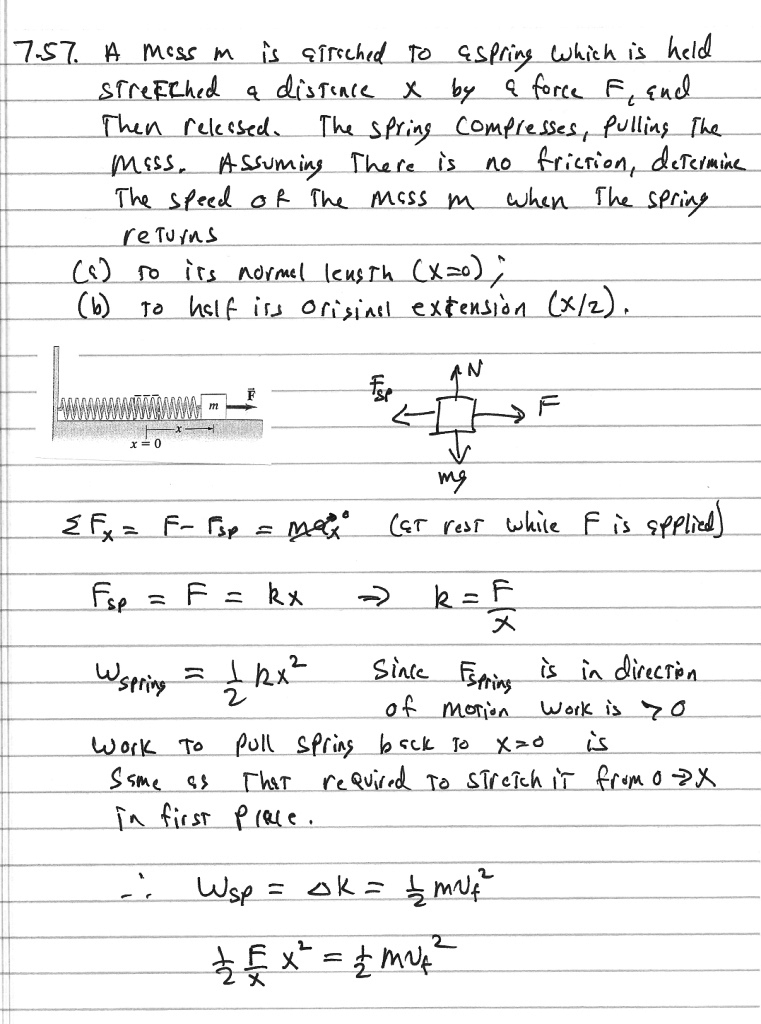 7-57. A mass m is attached to a spring which is held
stretched a distance x by a force F, and
Then released. The spring compresses, pulling The
mass. Assuming There is no friction, determine
The speed of The mass m when The spring
returns
(a) to its normal length (x=0);
(b) to half its original extension (x/2).
F⃗
m
x
x = 0
N
Fsp
F
mg
ΣFx = F - Fsp = max 0 (at rest while F is applied)
Fsp = F = kx ⇒ k = F/x
Wspring = 1/2 kx² Since Fspring is in direction
of motion work is > 0
Work to pull spring back to x=0 is
Same as That required to stretch it from 0→x
in first place.
∴ Wsp = ΔK = 1/2 mvf²
1/2 F/x x² = 1/2 mvf²